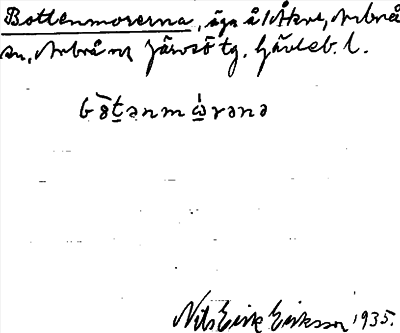 Bottenmorerna, äga å Åkre, Arbrå
sn, Arbrå och Järvsö tg. Gävleb. l.
Nils Erik Eriksson 1935.